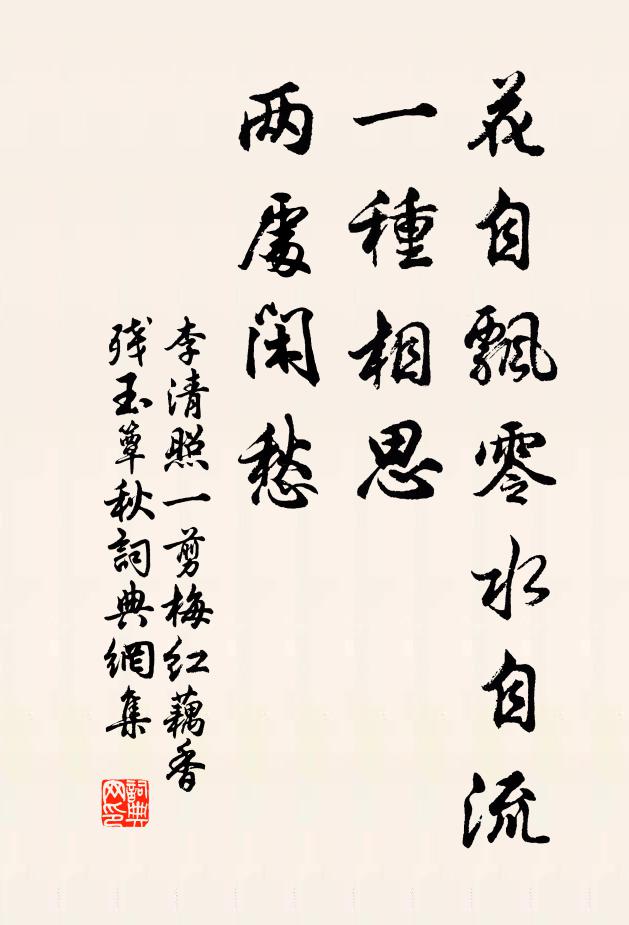 花自飄零水自流
一種相思
两處閑愁
李清照一剪梅红藕香
残玉簟秋詞典網集
詞典网印